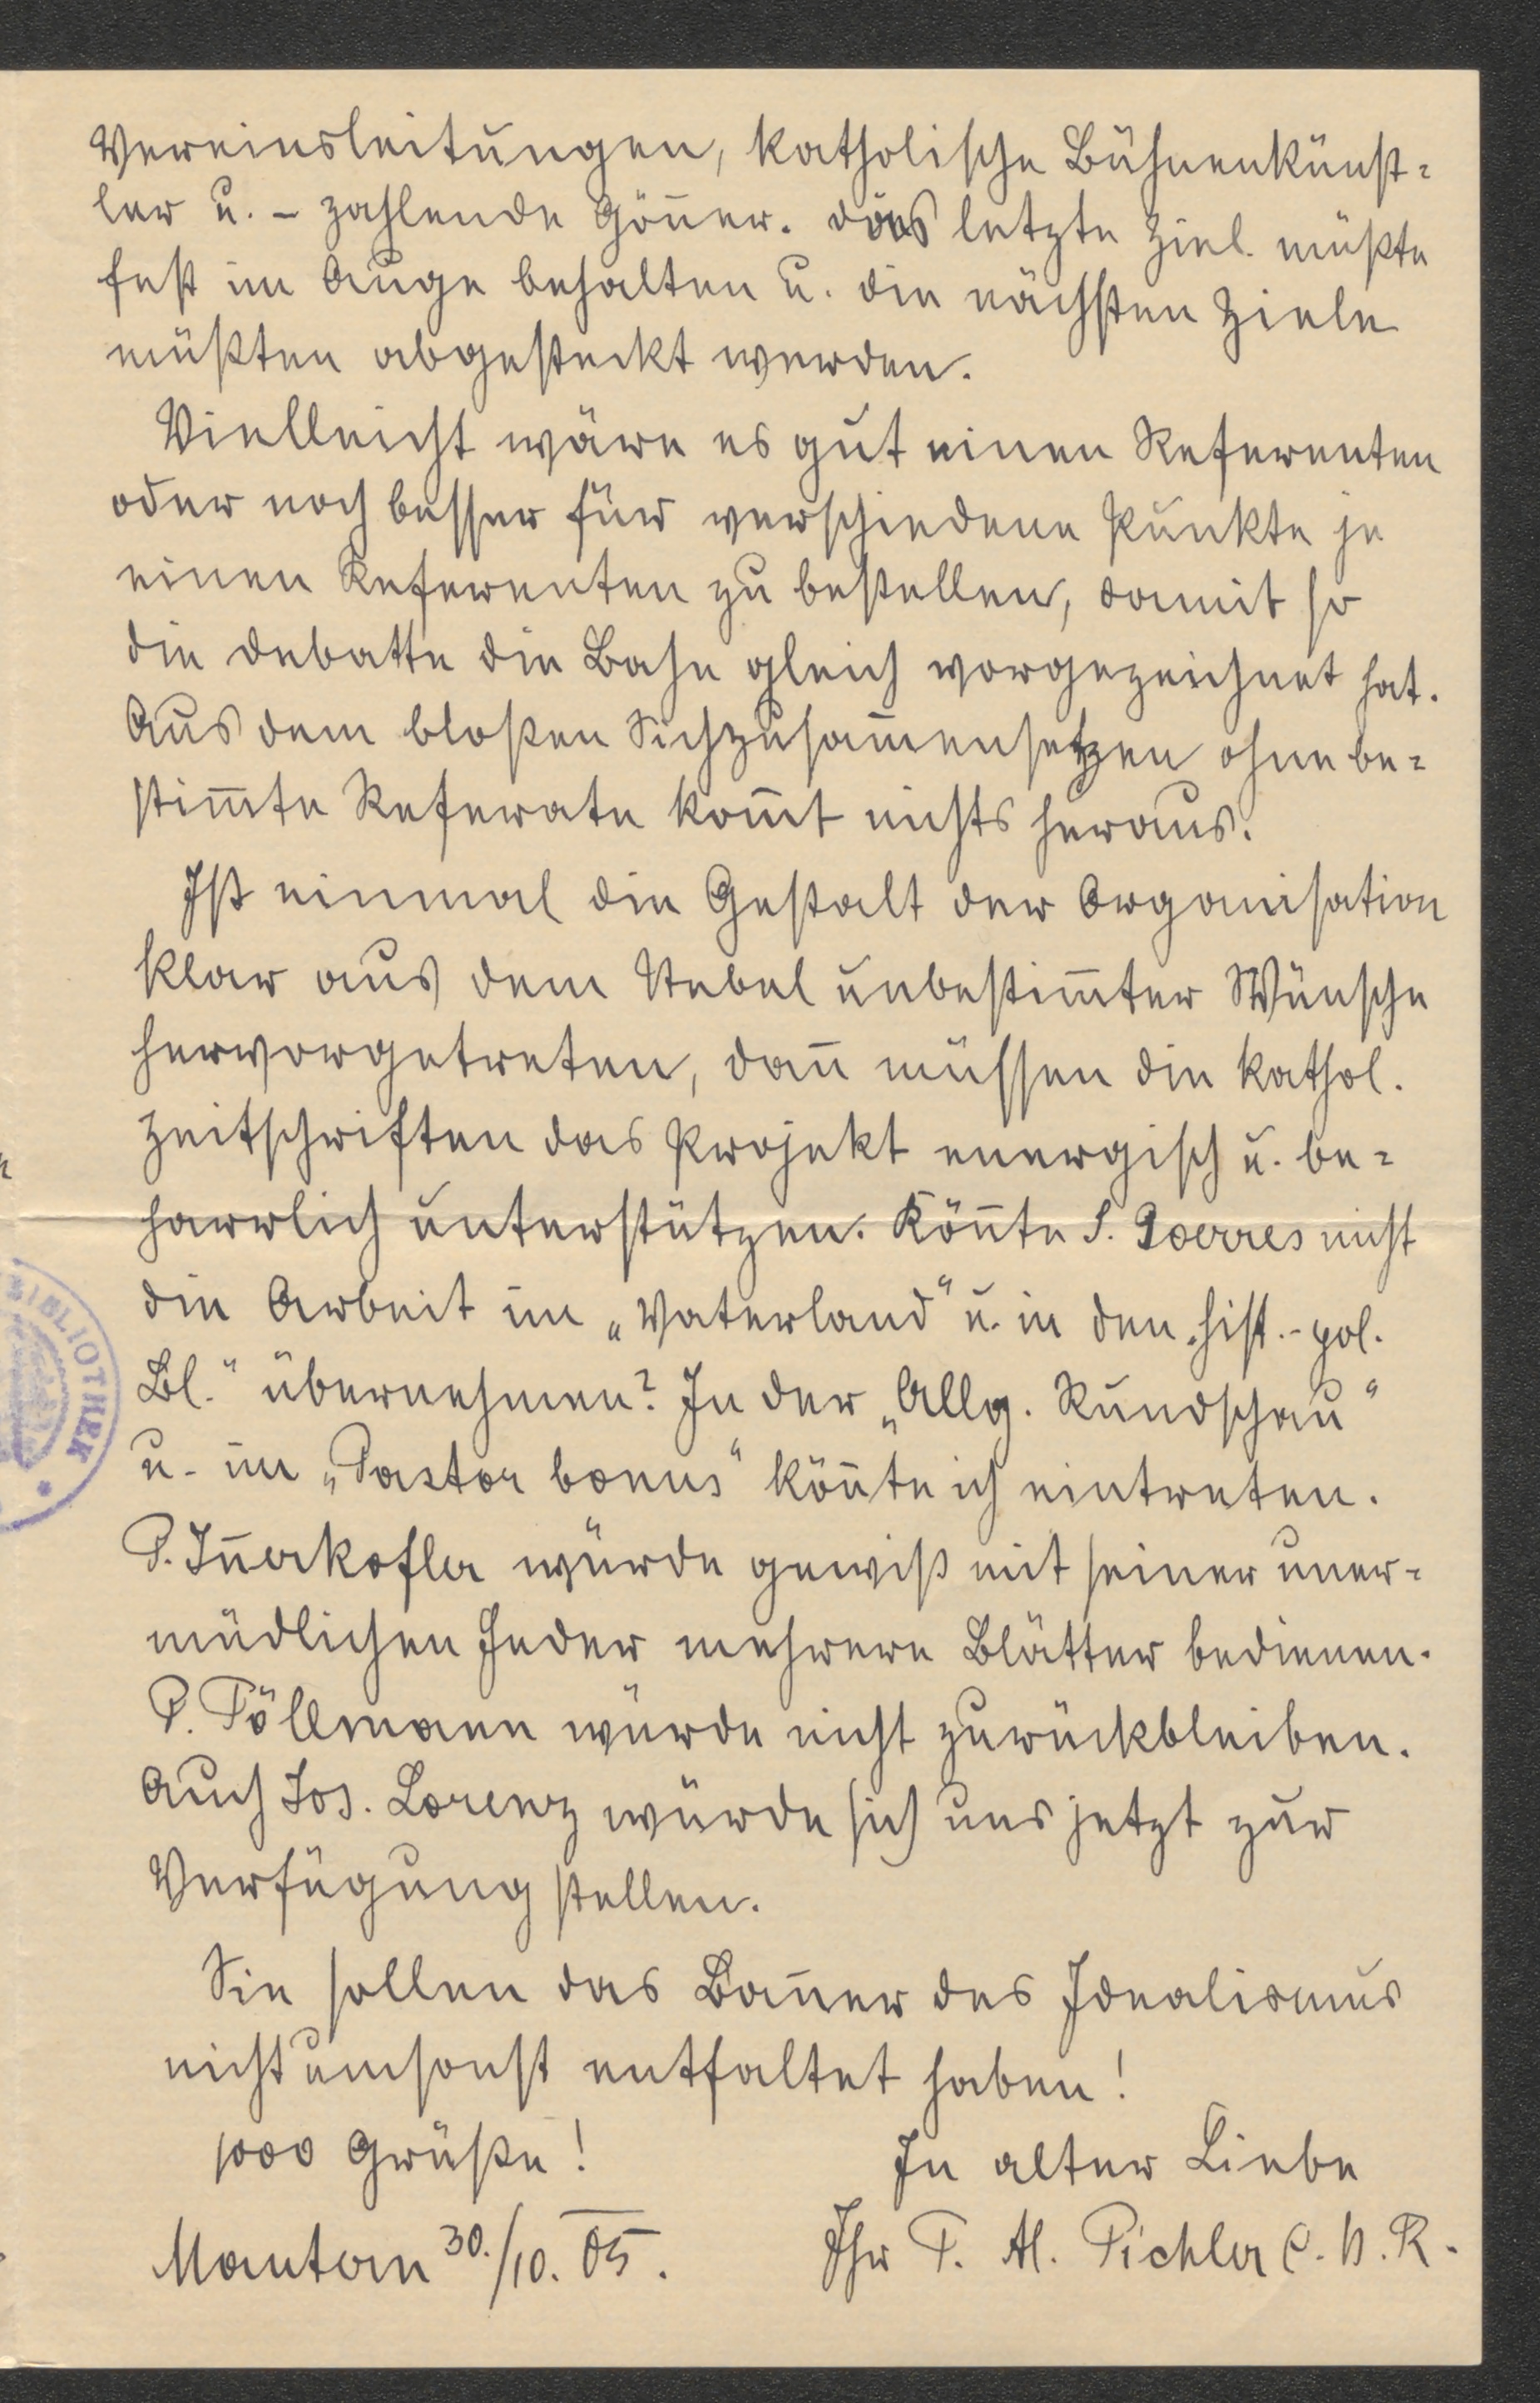 Vereinsleitungen, katholische Bühnenkünst-
ler u. – zahlende Göñer. Das letzte Ziel müßte
fest im Auge behalten u. die nächsten Ziele
müßten abgesteckt werden.
Vielleicht wäre es gut einen Referenten
oder noch besser für verschiedene Punkte je
einen Referenten zu bestellen, damit so
die Debatte die Bahn gleich vorgezeichnet hat.
Aus dem bloßen Sichzusam̄ensetzen ohne be-
stim̄te Referate kom̄t nichts heraus.
Ist einmal die Gestalt der Organisation
klar aus dem Nebel unbestim̄ter Wünsche
hervorgetreten, dañ müssen die kathol.
Zeitschriften das Projekt energisch u. be-
harrlich unterstützen. Köñte S. Goerres nicht
die Arbeit im „Vaterland“ u. in den „hist.-pol.
Bl.“ übernehmen? In der „Allg. Rundschau“
u. im „Pastor bonus“ köñte ich eintreten.
P. Iñerkofler würde gewiß mit seiner uner-
müdlichen Feder mehrere Blätter bedienen.
P. Pöllmann würde nicht zurückbleiben.
Auch Jos. Lorenz würde sich uns jetzt zur
Verfügung stellen.
Sie sollen das Bañer des Idealismus
nicht umsonst entfaltet haben!
1000 Grüße!
In alter Liebe
Mautern 30./10. 05.
Ihr P. Al. Pichler C. Ss. R.
BIBLIOTHEK